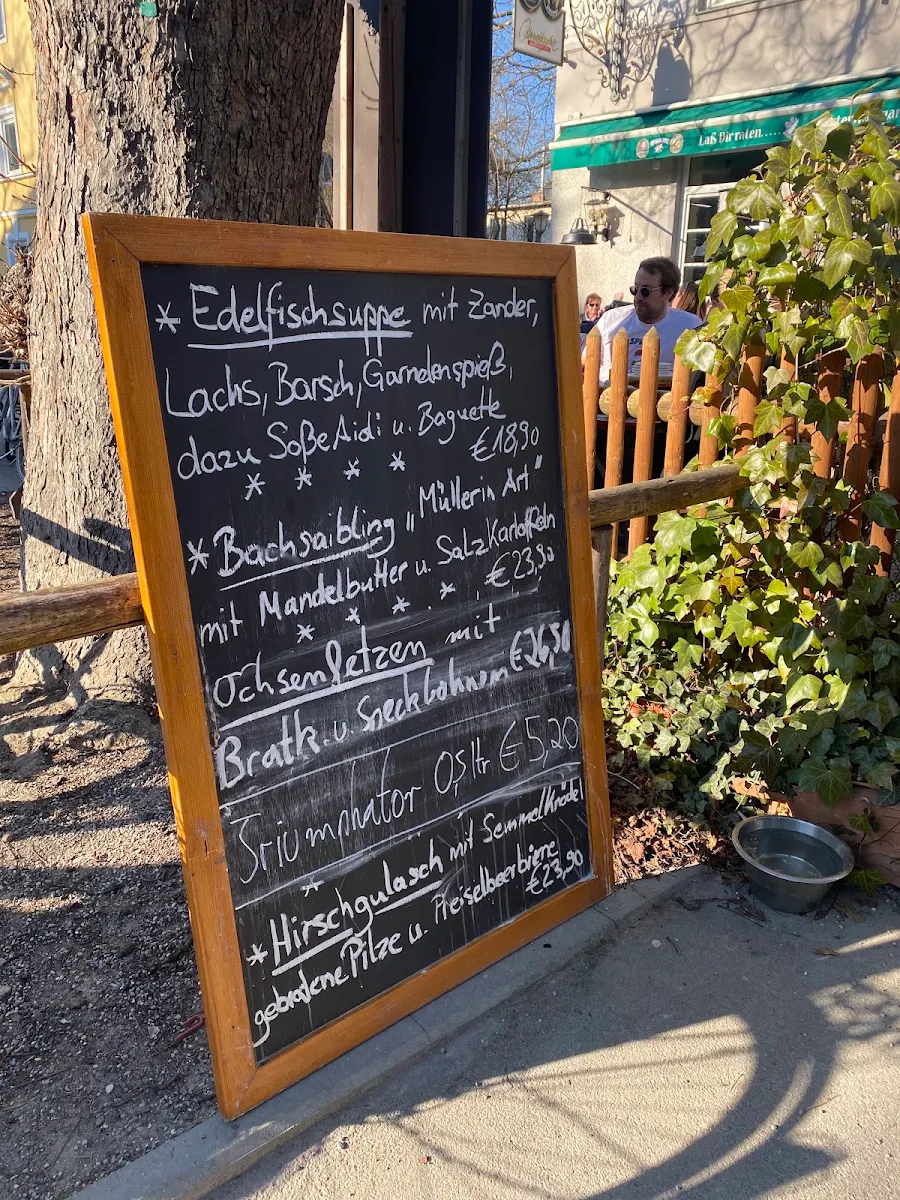 * Edelfischsuppe mit Zander,
Lachs, Barsch, Garnelenspieß,
dazu Soße Aidi u. Baguette
€18,90
* * * *
* Bachsaibling „Müllerin Art"
mit Mandelbutter u. Salzkartoffeln
* * * * €23,90
Ochsenfetzen mit
Bratk. u. Speckbohnen €26,50
Triumphator 0,5ltr €5,20
*
* Hirschgulasch mit Semmelknödel
gebratene Pilze u. Preiselbeerbirne
€23,90
Laß Dir raten.....